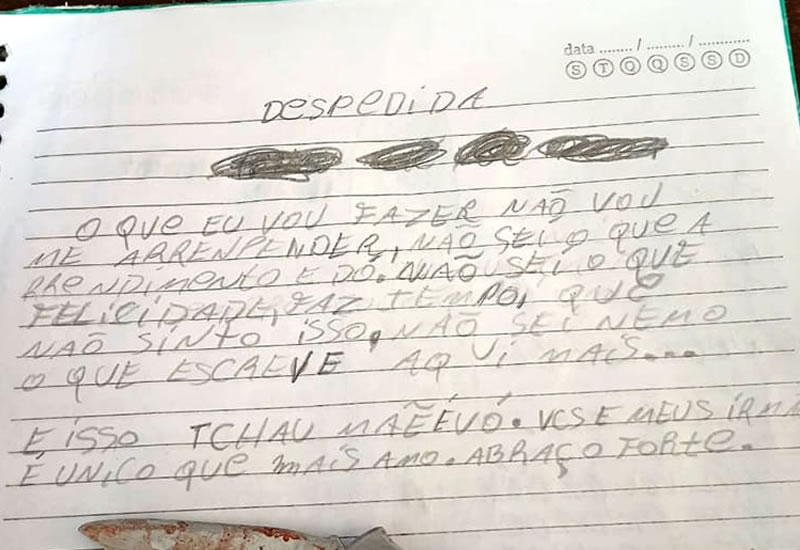 data ........ / ........ / ............
S T Q Q S S D
DESPEDIDA
O QUE EU VOU FAZER NÃO VOU
ME ARRENPENDER, NÃO SEI O QUE A
RRENDIMENTO E DÓ. NÃO SEI O QUE
FELICIDADE, FAZ TEMPO, QUE
NÃO SINTO ISSO, NÃO SEI NEMO
O QUE ESCREVE AQUI MAIS...
E ISSO TCHAU MÃE E VÓ. VCS E MEUS IRMÃ
É UNICO QUE MAIS AMO. ABRAÇO FORTE.